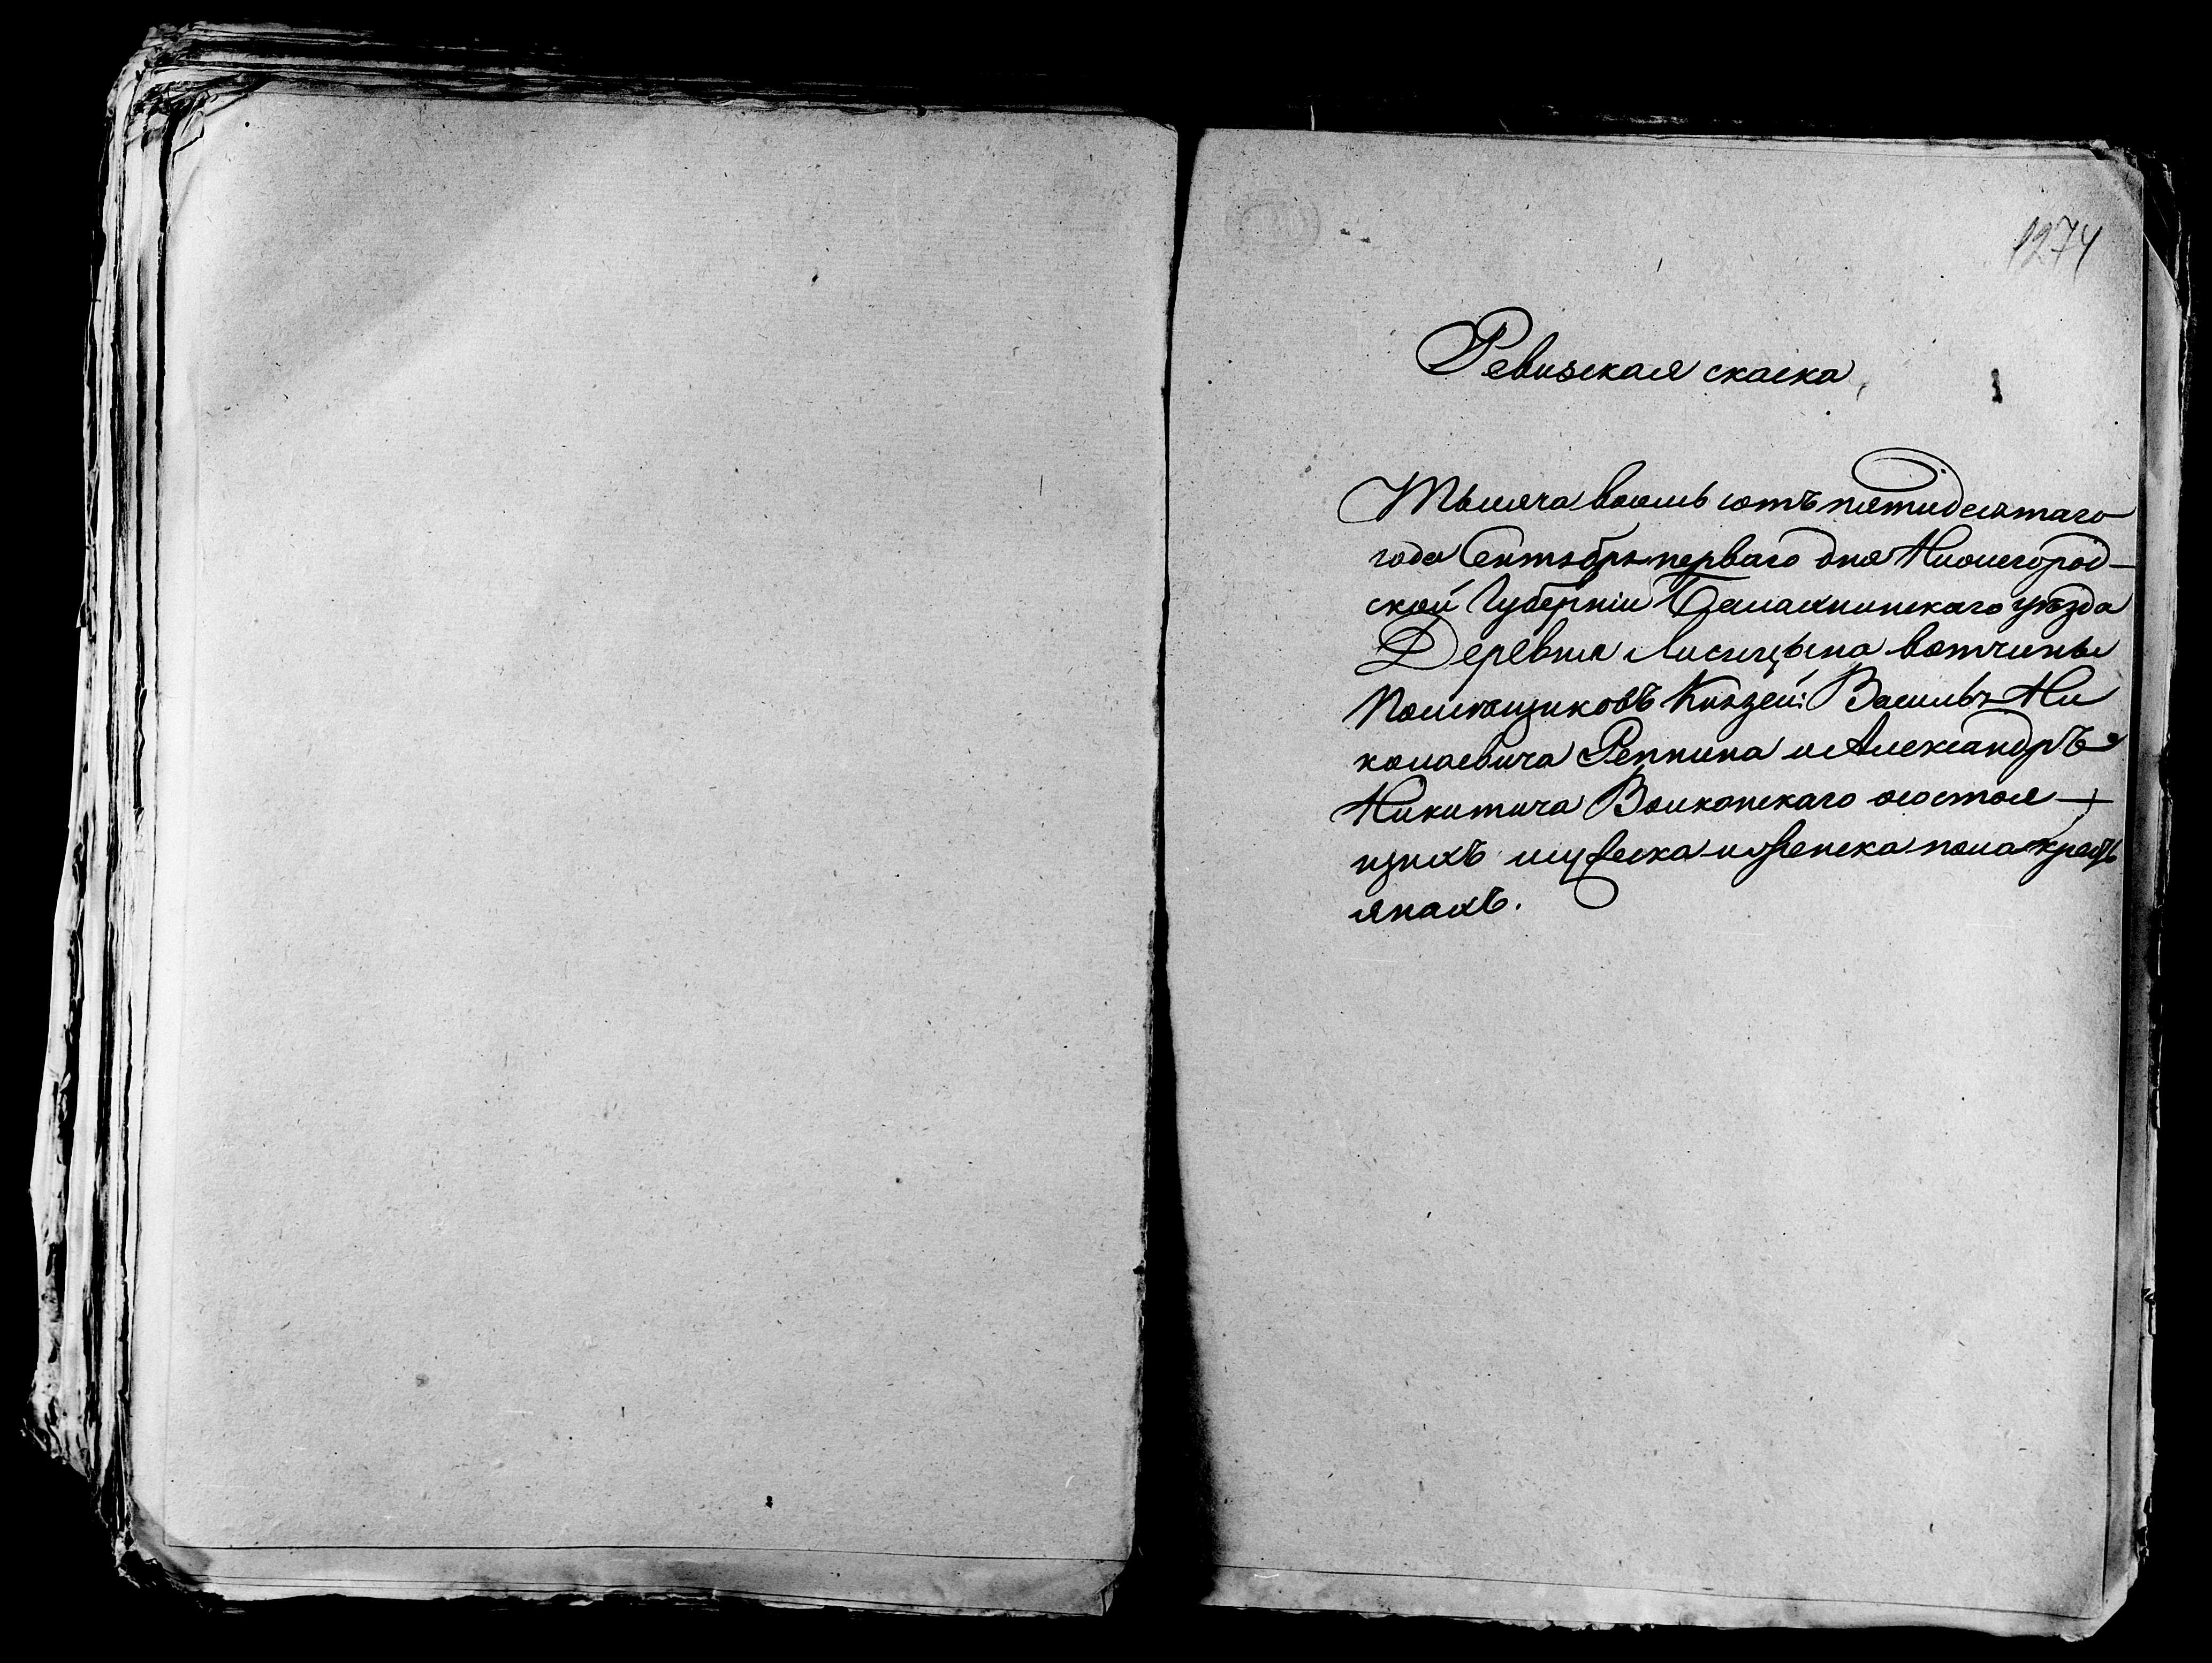 1274
Ревизская скаска
Тысяча восемь сотъ пятидесятаго
года Сентября перваго дня Нижегород-
ской Губерніи Балахнинскаго уѣзда
Деревня Лисицына вотчины
Помѣщиковъ Князей: Василья Ни
колаевича Репнина и Александръ
Никитича Волконскаго о состоя-
щихъ мужеска и женска пола кресть
янахъ.